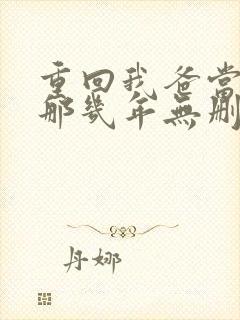 重回我爸当
那几年无删
丹娜